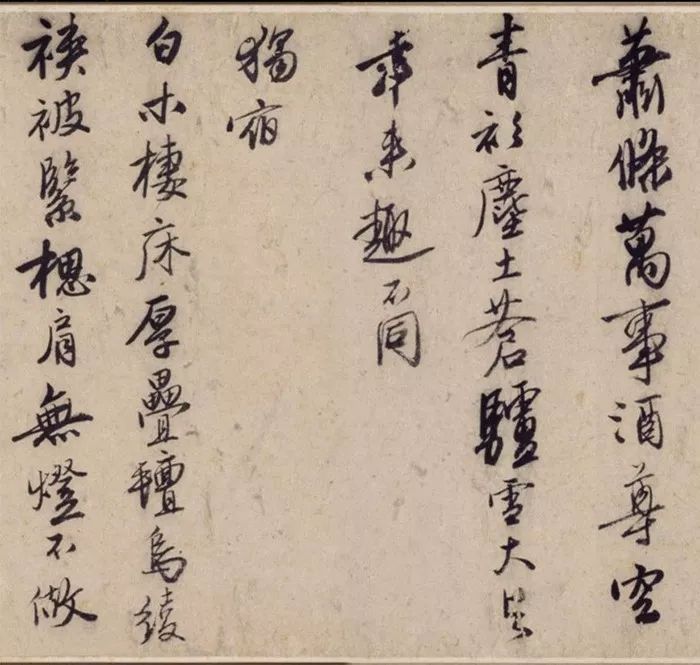 蕭條萬事酒尊空
青衫塵土蒼驢雪大是
年来趣不同
獨宿
白木棲床厚疊氊烏綾
襆被緊肩無燈不做